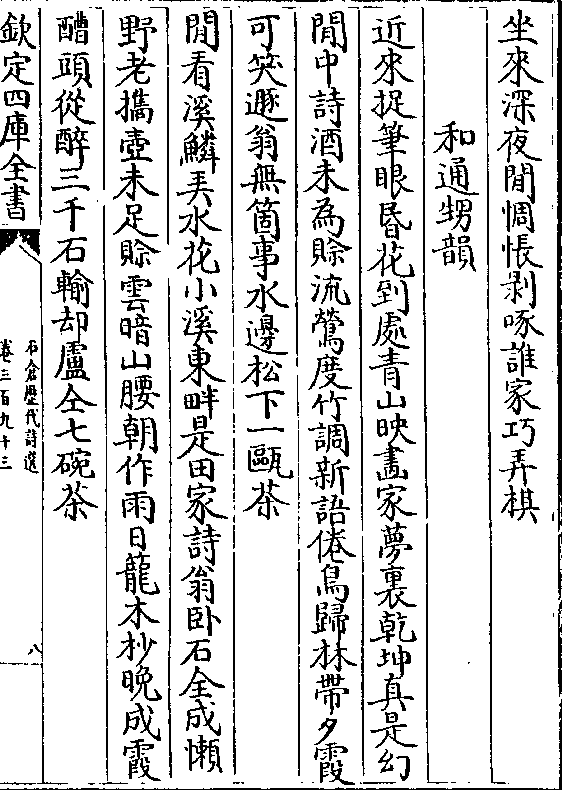 坐來深夜閒惆悵剥啄誰家巧弄棋
和通甥韻
近來捉筆眼昏花到處青山映畫家夢裏乾坤真是幻
閒中詩酒未為賒流鶯度竹調新語倦鳥歸林帶夕霞
可笑遯翁無箇事水邊松下一甌茶
閒看溪鱗弄水花小溪東畔是田家詩翁卧石全成懶
野老攜壺未足賒雲暗山腰朝作雨日籠木杪晚成霞
醩頭從醉三千石輸却盧仝七碗茶
欽定四庫全書
石倉歷代詩選
卷三百九十三
八